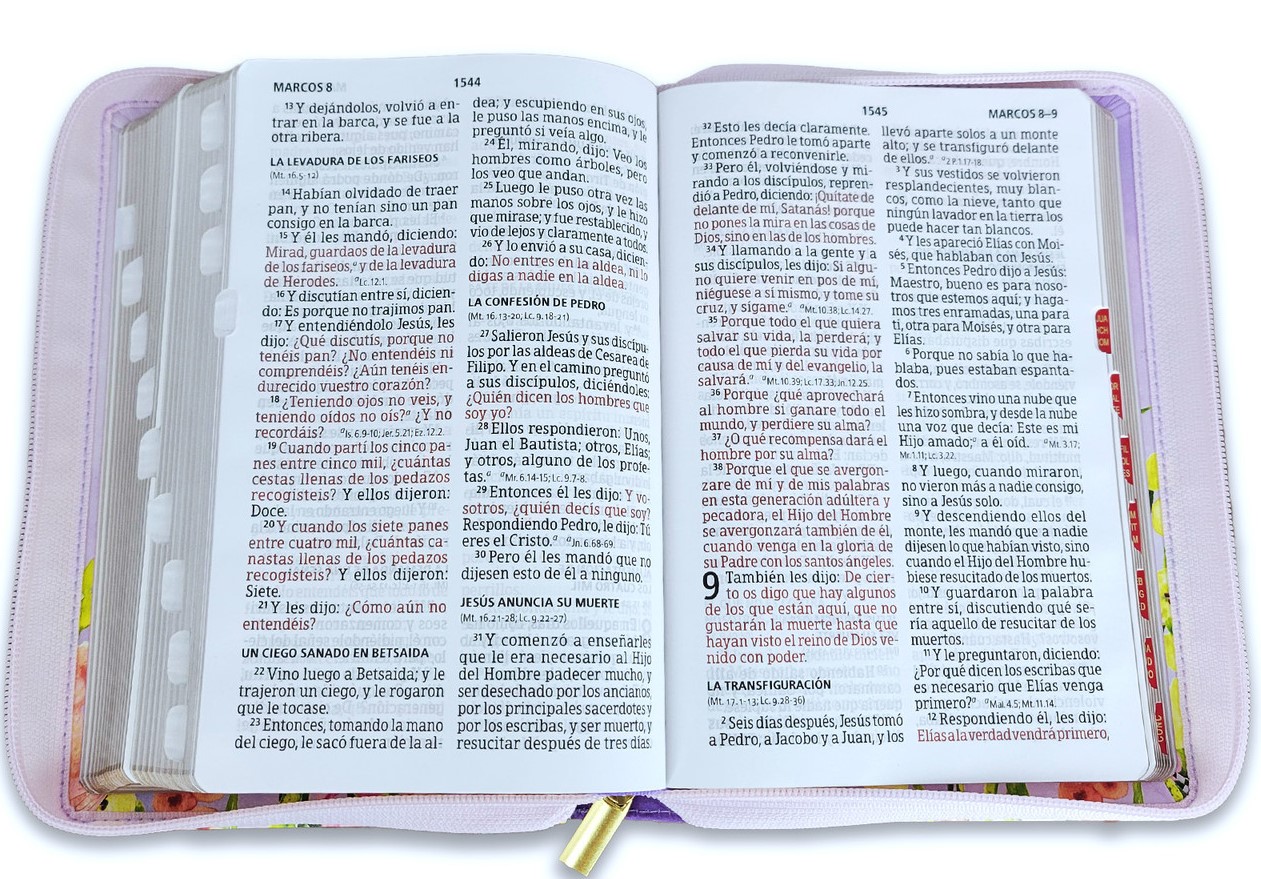 MARCOS 8
1544
13 Y dejándolos, volvió a en-
trar en la barca, y se fue a la
otra ribera.
LA LEVADURA DE LOS FARISEOS
(Mt. 16.5-12)
14 Habían olvidado de traer
pan, y no tenían sino un pan
consigo en la barca.
15 Y él les mandó, diciendo:
Mirad, guardaos de la levadura
de los fariseos,a y de la levadura
de Herodes. a Lc. 12.1.
16 Y discutían entre sí, dicien-
do: Es porque no trajimos pan.
17 Y entendiéndolo Jesús, les
dijo: ¿Qué discutís, porque no
tenéis pan? ¿No entendéis ni
comprendéis? ¿Aún tenéis en-
durecido vuestro corazón?
18 ¿Teniendo ojos no veis, y
teniendo oídos no oís?a ¿Y no
recordáis? a Is. 6.9-10; Jer. 5.21; Ez. 12.2.
19 Cuando partí los cinco pa-
nes entre cinco mil, ¿cuántas
cestas llenas de los pedazos
recogisteis? Y ellos dijeron:
Doce.
20 Y cuando los siete panes
entre cuatro mil, ¿cuántas ca-
nastas llenas de los pedazos
recogisteis? Y ellos dijeron:
Siete.
21 Y les dijo: ¿Cómo aún no
entendéis?
UN CIEGO SANADO EN BETSAIDA
22 Vino luego a Betsaida; y le
trajeron un ciego, y le rogaron
que le tocase.
23 Entonces, tomando la mano
del ciego, le sacó fuera de la al-
dea; y escupiendo en sus ojos,
le puso las manos encima, y le
preguntó si veía algo.
24 Él, mirando, dijo: Veo los
hombres como árboles, pero
los veo que andan.
25 Luego le puso otra vez las
manos sobre los ojos, y le hizo
que mirase; y fue restablecido, y
vio de lejos y claramente a todos.
26 Y lo envió a su casa, dicien-
do: No entres en la aldea, ni lo
digas a nadie en la aldea.
LA CONFESIÓN DE PEDRO
(Mt. 16.13-20; Lc. 9.18-21)
27 Salieron Jesús y sus discípu-
los por las aldeas de Cesarea de
Filipo. Y en el camino preguntó
a sus discípulos, diciéndoles:
¿Quién dicen los hombres que
soy yo?
28 Ellos respondieron: Unos,
Juan el Bautista; otros, Elías;
y otros, alguno de los profe-
tas.a a Mr. 6.14-15; Lc. 9.7-8.
29 Entonces él les dijo: Y vo-
sotros, ¿quién decís que soy?
Respondiendo Pedro, le dijo: Tú
eres el Cristo.a a Jn. 6.68-69.
30 Pero él les mandó que no
dijesen esto de él a ninguno.
JESÚS ANUNCIA SU MUERTE
(Mt. 16.21-28; Lc. 9.22-27)
31 Y comenzó a enseñarles
que le era necesario al Hijo
del Hombre padecer mucho, y
ser desechado por los ancianos,
por los principales sacerdotes y
por los escribas, y ser muerto, y
resucitar después de tres días.
1545
MARCOS 8–9
32 Esto les decía claramente.
Entonces Pedro le tomó aparte
y comenzó a reconvenirle.
33 Pero él, volviéndose y mi-
rando a los discípulos, repren-
dió a Pedro, diciendo: ¡Quítate de
delante de mí, Satanás! porque
no pones la mira en las cosas de
Dios, sino en las de los hombres.
34 Y llamando a la gente y a
sus discípulos, les dijo: Si algu-
no quiere venir en pos de mí,
niéguese a sí mismo, y tome su
cruz, y sígame. a Mt. 10.38; Lc. 14.27.
35 Porque todo el que quiera
salvar su vida, la perderá; y
todo el que pierda su vida por
causa de mí y del evangelio, la
salvará.a a Mt. 10.39; Lc. 17.33; Jn. 12.25.
36 Porque ¿qué aprovechará
al hombre si ganare todo el
mundo, y perdiere su alma?
37 ¿O qué recompensa dará el
hombre por su alma?
38 Porque el que se avergon-
zare de mí y de mis palabras
en esta generación adúltera y
pecadora, el Hijo del Hombre
se avergonzará también de él,
cuando venga en la gloria de
su Padre con los santos ángeles.
9 También les dijo: De cier-
to os digo que hay algunos
de los que están aquí, que no
gustarán la muerte hasta que
hayan visto el reino de Dios ve-
nido con poder.
LA TRANSFIGURACIÓN
(Mt. 17.1-13; Lc. 9.28-36)
2 Seis días después, Jesús tomó
a Pedro, a Jacobo y a Juan, y los
llevó aparte solos a un monte
alto; y se transfiguró delante
de ellos.a a 2 P. 1.17-18.
3 Y sus vestidos se volvieron
resplandecientes, muy blan-
cos, como la nieve, tanto que
ningún lavador en la tierra los
puede hacer tan blancos.
4 Y les apareció Elías con Moi-
sés, que hablaban con Jesús.
5 Entonces Pedro dijo a Jesús:
Maestro, bueno es para noso-
tros que estemos aquí; y haga-
mos tres enramadas, una para
ti, otra para Moisés, y otra para
Elías.
6 Porque no sabía lo que ha-
blaba, pues estaban espanta-
dos.
7 Entonces vino una nube que
les hizo sombra, y desde la nube
una voz que decía: Este es mi
Hijo amado;a a él oíd. a Mt. 3.17;
Mr. 1.11; Lc. 3.22.
8 Y luego, cuando miraron,
no vieron más a nadie consigo,
sino a Jesús solo.
9 Y descendiendo ellos del
monte, les mandó que a nadie
dijesen lo que habían visto, sino
cuando el Hijo del Hombre hu-
biese resucitado de los muertos.
10 Y guardaron la palabra
entre sí, discutiendo qué se-
ría aquello de resucitar de los
muertos.
11 Y le preguntaron, diciendo:
¿Por qué dicen los escribas que
es necesario que Elías venga
primero?a a Mal. 4.5; Mt. 11.14.
12 Respondiendo él, les dijo:
Elías a la verdad vendrá primero,